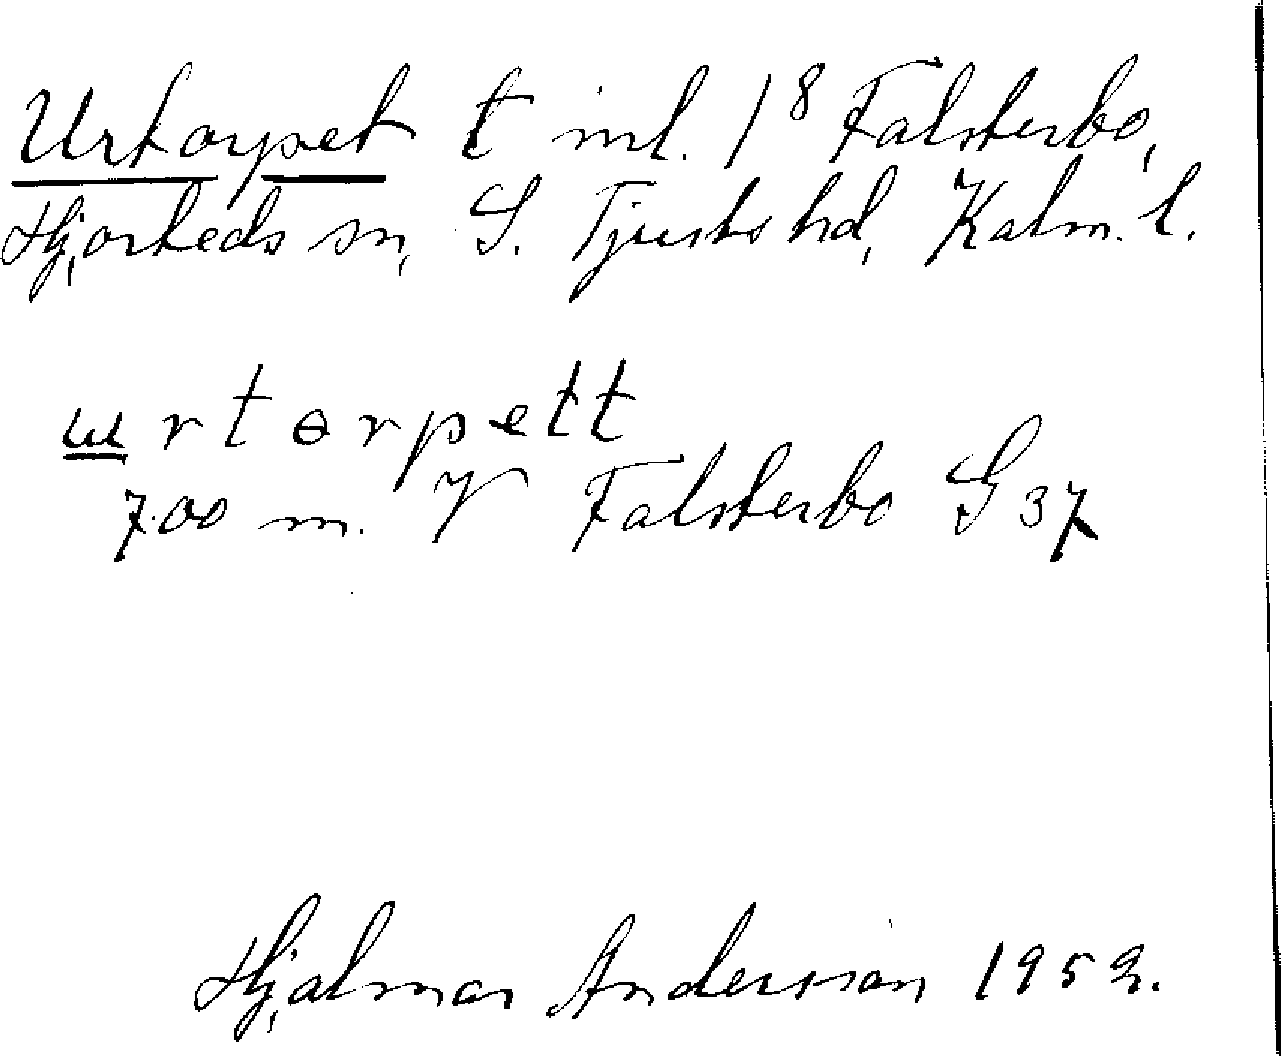 Urtorpet t inl. 1⁸ Falsterbo,
Hjorteds sn, S. Tjusts hd, Kalm. l.
ɯrtɵrpett
700 m. V Falsterbo G 37
Hjalmar Andersson 1952.